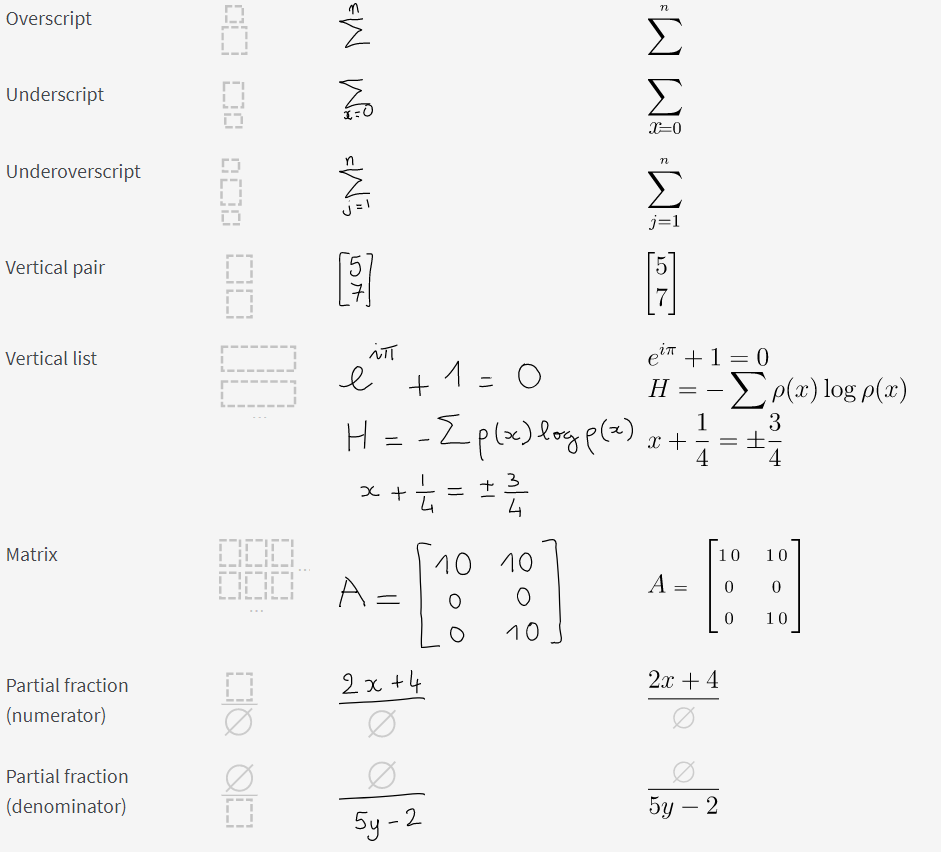 Overscript n ∑ n ∑
Underscript ∑ x=0 ∑ x=0
Underoverscript n ∑ j=1 n ∑ j=1
Vertical pair [5 7] [5 7]
Vertical list
e^{iπ} + 1 = 0 e^{iπ} + 1 = 0
H = -∑ρ(x)logρ(x) H = −∑ρ(x) log ρ(x)
x + 1/4 = ± 3/4 x + 1/4 = ± 3/4
...
Matrix
A = [10 10 A = [10 10
0 0 0 0
0 10] 0 10]
... ...
Partial fraction (numerator) 2x+4 ∅ 2x + 4 ∅
Partial fraction (denominator) ∅ 5y-2 ∅ 5y − 2